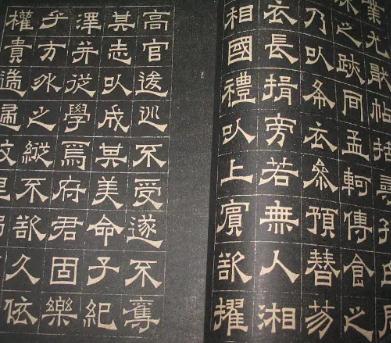 之同孟軻傳食之
乃以布衣參預替
衣長揖旁若無人湘
相國禮以上賓欲擢
高官逡巡不受遂不奪
其志以成其美命子紀
澤并從學焉府君固樂
乎方外之縱不欲久依
權貴